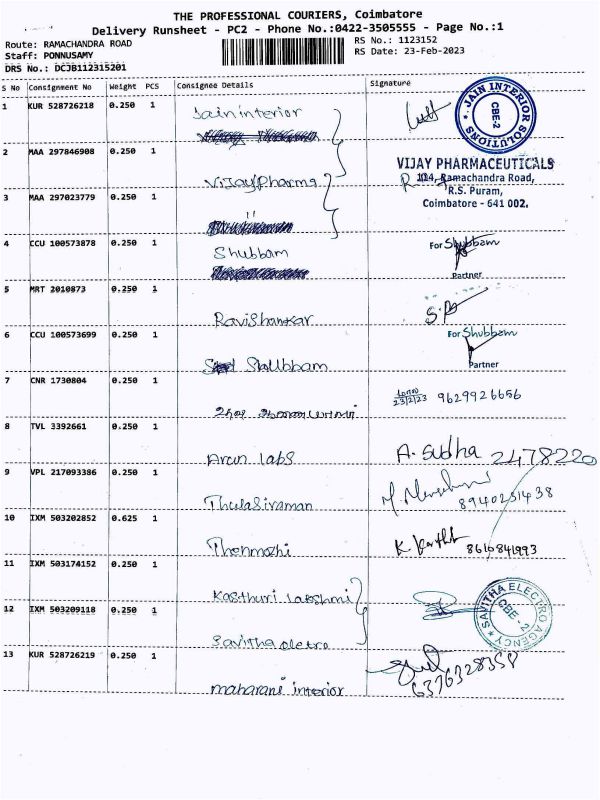 THE PROFESSIONAL COURIERS, Coimbatore
Delivery Runsheet - PC2 - Phone No.:0422-3505555 - Page No.:1
Route: RAMACHANDRA ROAD
Staff: PONNUSAMY
DRS No.: DCJB112315201
RS No.: 1123152
RS Date: 23-Feb-2023
S No Consignment No Weight PCS Consignee Details Signature
1 KUR 528726218 0.250 1 Jain interior
JAIN INTERIOR SOLUTIONS CBE-2
2 MAA 297846908 0.250 1 Vijay Pharma
VIJAY PHARMACEUTICALS
114, Ramachandra Road,
R.S. Puram,
Coimbatore - 641 002.
3 MAA 297023779 0.250 1 "
4 CCU 100573878 0.250 1 Shubbam For Shubbam
Partner
5 MRT 2010873 0.250 1 Ravi Shankar
6 CCU 100573699 0.250 1 For Shubbam
Partner
7 CNR 1730804 0.250 1 23/2/23 9629926656
8 TVL 3392661 0.250 1 Arun labs A. Sudha 2478220
9 VPL 217093386 0.250 1 Thulasiraman 8940251438
10 IXM 503202852 0.625 1 Thenmozhi K. Karthi 8610841993
11 IXM 503174152 0.250 1 Kasthuri Lakshmi
12 IXM 503209118 0.250 1 Savitha eletro
SAVITHA ELECTRO AGENCY CBE-2
13 KUR 528726219 0.250 1 maharani interior 6376328358